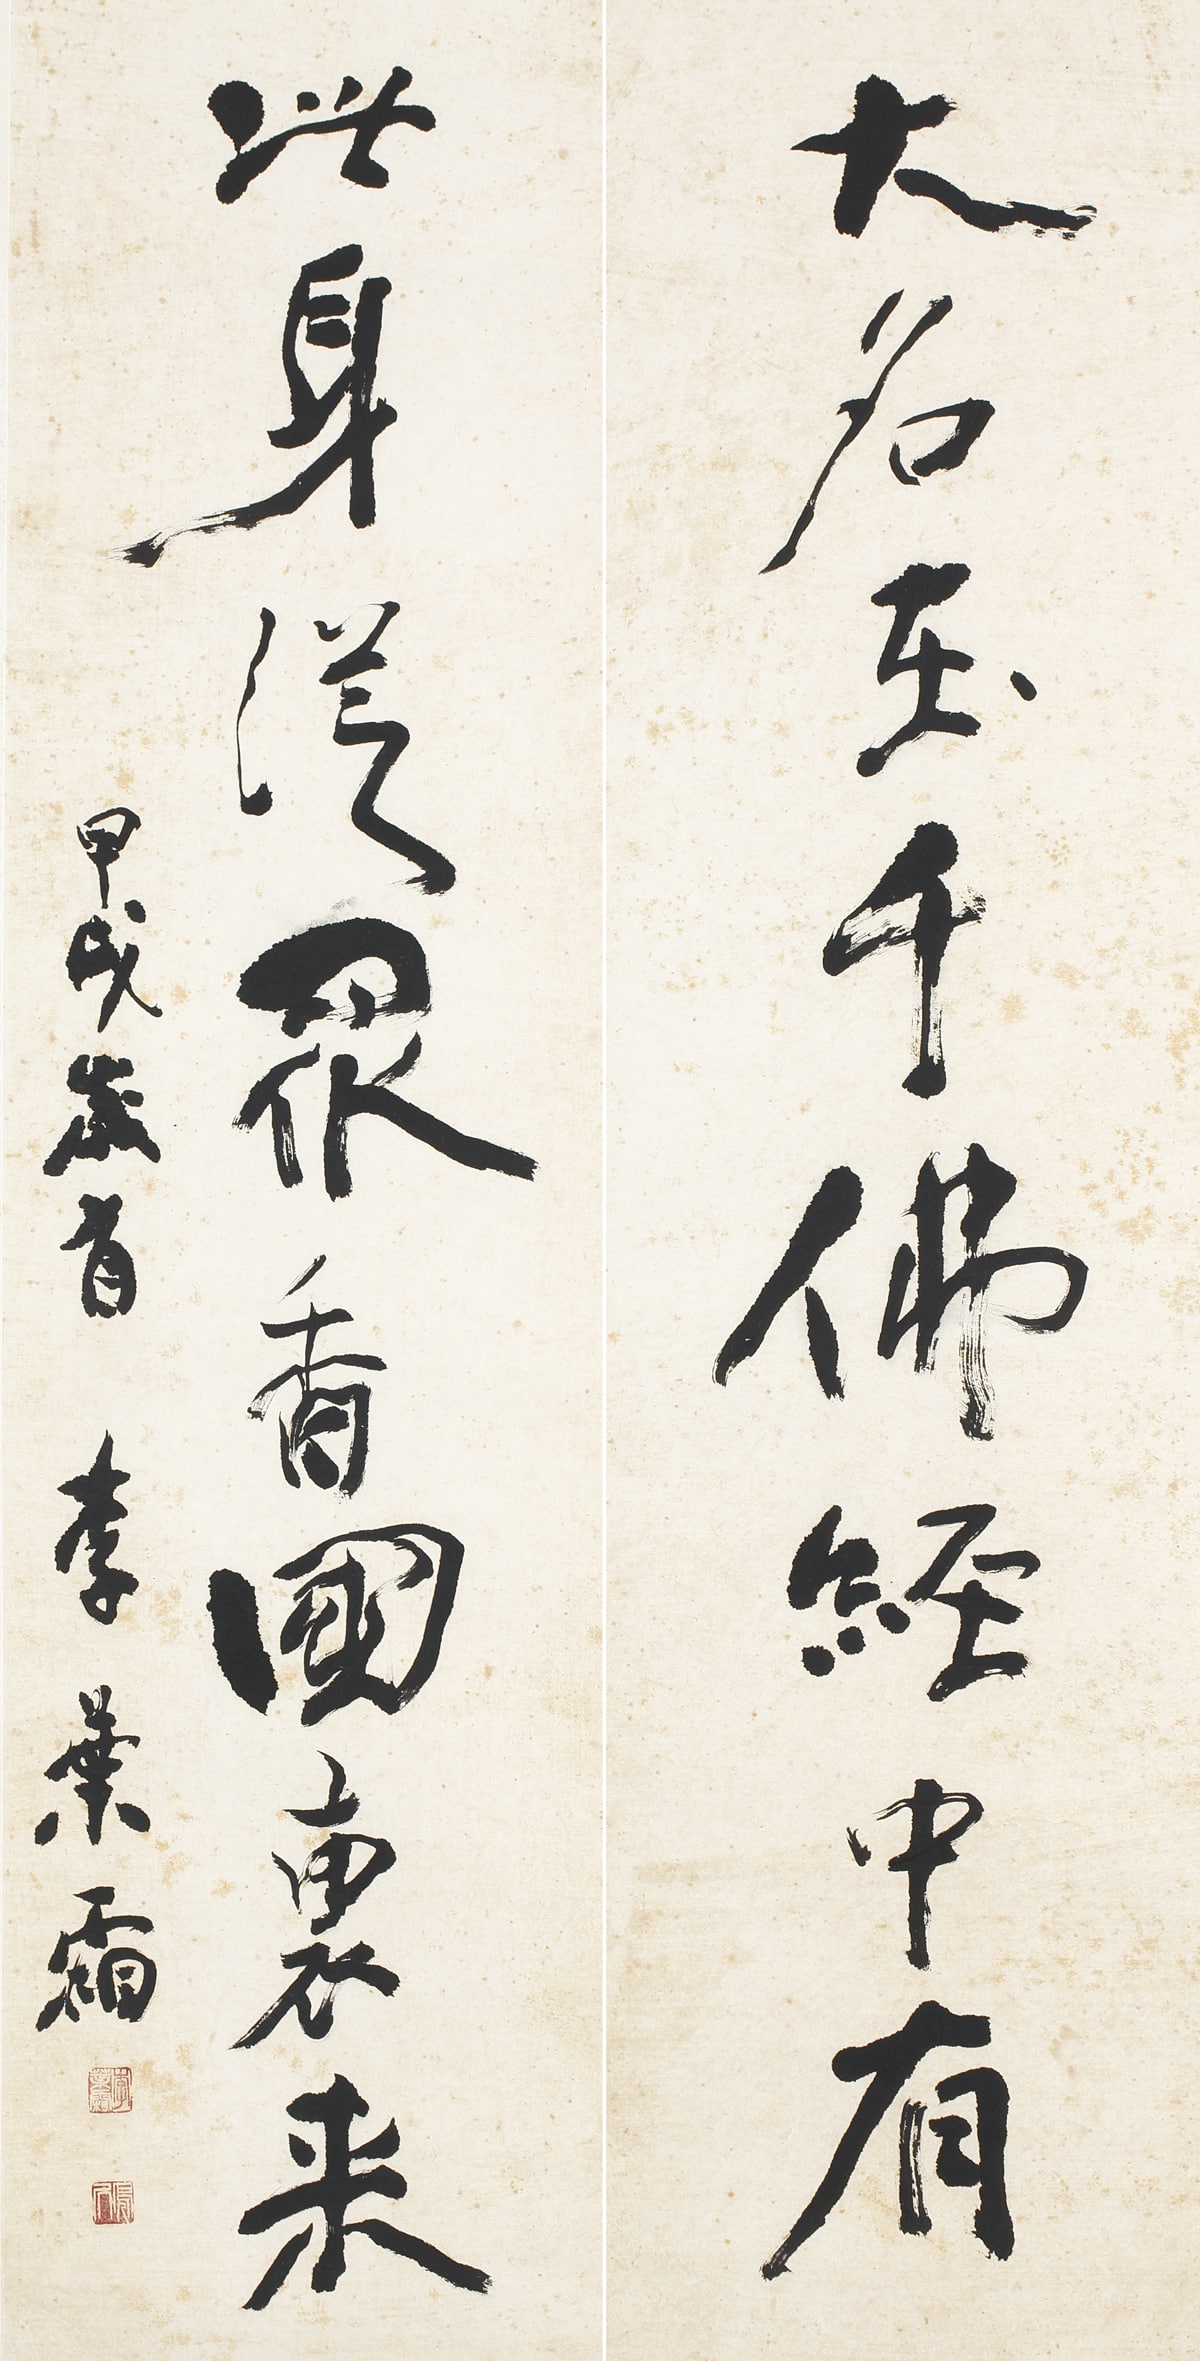 大名在千佛經中有
此身從眾香國裏來
甲戌歲首 李葉霜